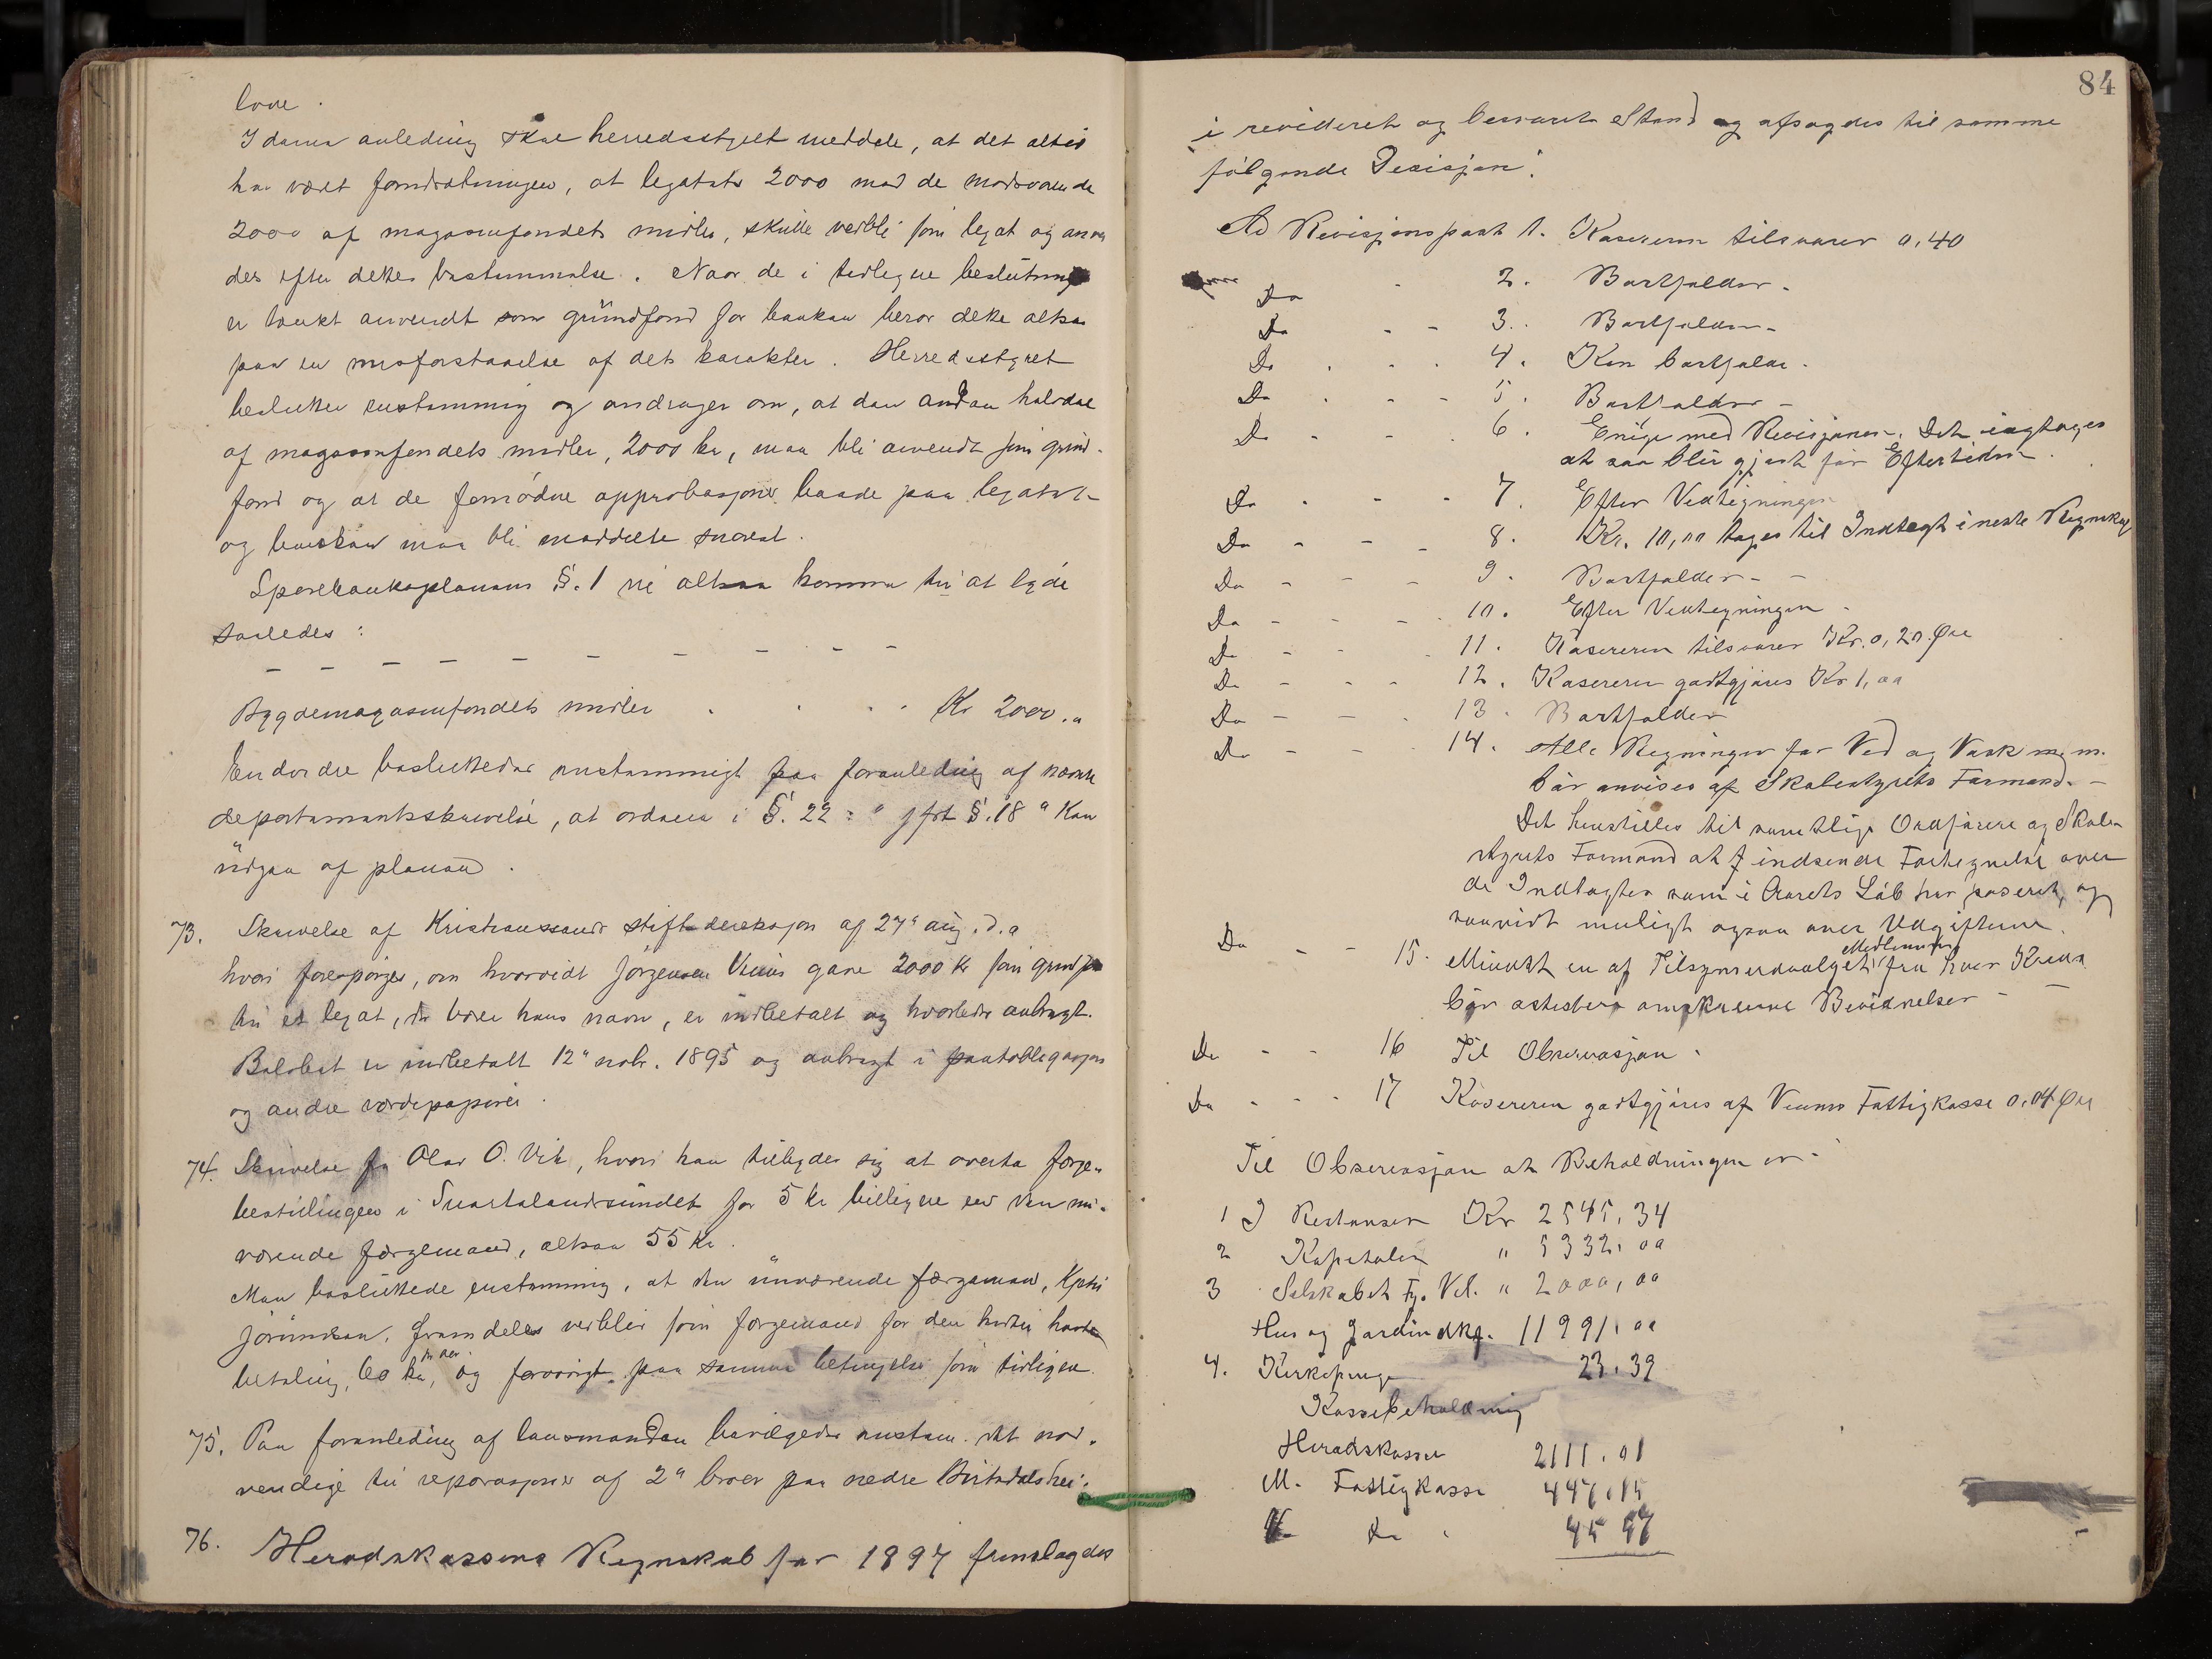 love.
I denne anledning skal herredsstyret meddele, at det altid
har været forudsætningen, at legatets 2000 med de modsvarende
2000 af magasinfondets midler, skulle verbli som legat og anven
des efter dettes bestemmelse. Naar de i tidligere beslutning
er tænkt anvendt som grundfond for banken beror dette altsaa
paa en misforstaaelse af dets karakter. Herredsstyret
beslutter enstemmig og andrager om, at den anden halvdel
af magasinfondets midler, 2000 kr, maa bli anvendt som grund-
fond og at de fornødne approbasjoner baade paa legatet
og banken maa bli meddelte snarest.
Sparebankplanens §. 1 vil altsaa komme til at lyde
saaledes:
– – – – – – – – – –
Bygdemagasinfondets midler . . . . Kr 2000.„
Endvidre besluttedes enstemmigt paa foranledning af nævnte
departementsskrivelse, at ordene i §. 22: " jfrt §. 18 " kan
udgaa af planen.
73. Skrivelse af Kristianssands stiftsdireksjon af 27" aug. d. a
hvori forespørges, om hvorvidt Jørgensen gave 2000 kr som grundfon
til et legat, der bærer hans navn, er indbetalt og hvorledes anbragt.
Beløbet er indbetalt 12" nobr. 1895 og anbragt i pantobligasjoner
og andre værdipapirer.
74. Skrivelse fra Olav O. Vik, hvori han tilbyder sig at overta færge-
bestillingen i Svartalandssundet for 5 kr billigere end den nu-
værende færgemand, altsaa 55 kr.
Man besluttede enstemmig, at den nuværende færgemand, Kjetil
Jørundsen, fremdeles verblir som færgemand for den hidtil havte
betaling, 60 kr, pr aar, og forøvrigt paa samme betingelse som tidligere.
75. Paa foranledning af lensmanden bevilgedes enstem. det nød-
vendige til reparasjoner af 2" broer paa nedre
76. Heradskassens Regnskab for 1897 fremlagdes
84
i revideret og besvaret Stand og afsagdes til samme
følgende Decisjon:
Ad Revisjonspost 1. Kasereren tilsvarer 0,40
Do - 2. Bortfalder.
Do - - 3. Bortfalder -
Do . . . 4. Kan bortfalde.
Do . . - 5. Bortfalder -
Do - - . 6. Enige med Revisjonen. Det iagtages
at saa blir gjort for Eftertiden.
Do . - - 7. Efter Vedtegningen
Do - - - 8. Kr. 10,00 tages til Indtægt i neste Regnskab
Do - - - 9. Bortfalder - -
Do - - - 10. Efter Vedtegningen -
Do - - - 11. Kasereren tilsvarer Kr. 0,20 Øre
Do - - - 12. Kasereren godtgjøres Kr 1,00
Do - - . 13. Bortfalder
Do - - - 14. Alle Regninger for Ved og Vask m. m.
bør anvises af Skolestyrets Formand. -
Det henstilles til samtlige Ordførere og Skole-
styrets Formand at indsende Fortegnelse over
de Indtægter som i Aarets Løb har paseret, og
saavidt muligt ogsaa over Udgifterne.
Do - - 15. Mindst en af Tilsynsudvalgets Medlemmer fra hver Kreds
bør attestere omskrevne Bevidnelser - -
Do - - 16 Til Observasjon.
Do - - - 17 Kasereren godtgjøres af Fattigkasse 0,04 Øre
Til Observasjon at Beholdningen er:
1 I Restanser Kr 2545,34
2 Kapitaler " 5332,00
3 Selskabet Fj. Vel. " 2000,00
Hus og Jordindkg. 11991,00
4. Kirkepenge 23,39
Kassebeholdning
Heradskassen 2111,01
M. Fattigkasse 447,15
V. Do . 45 97